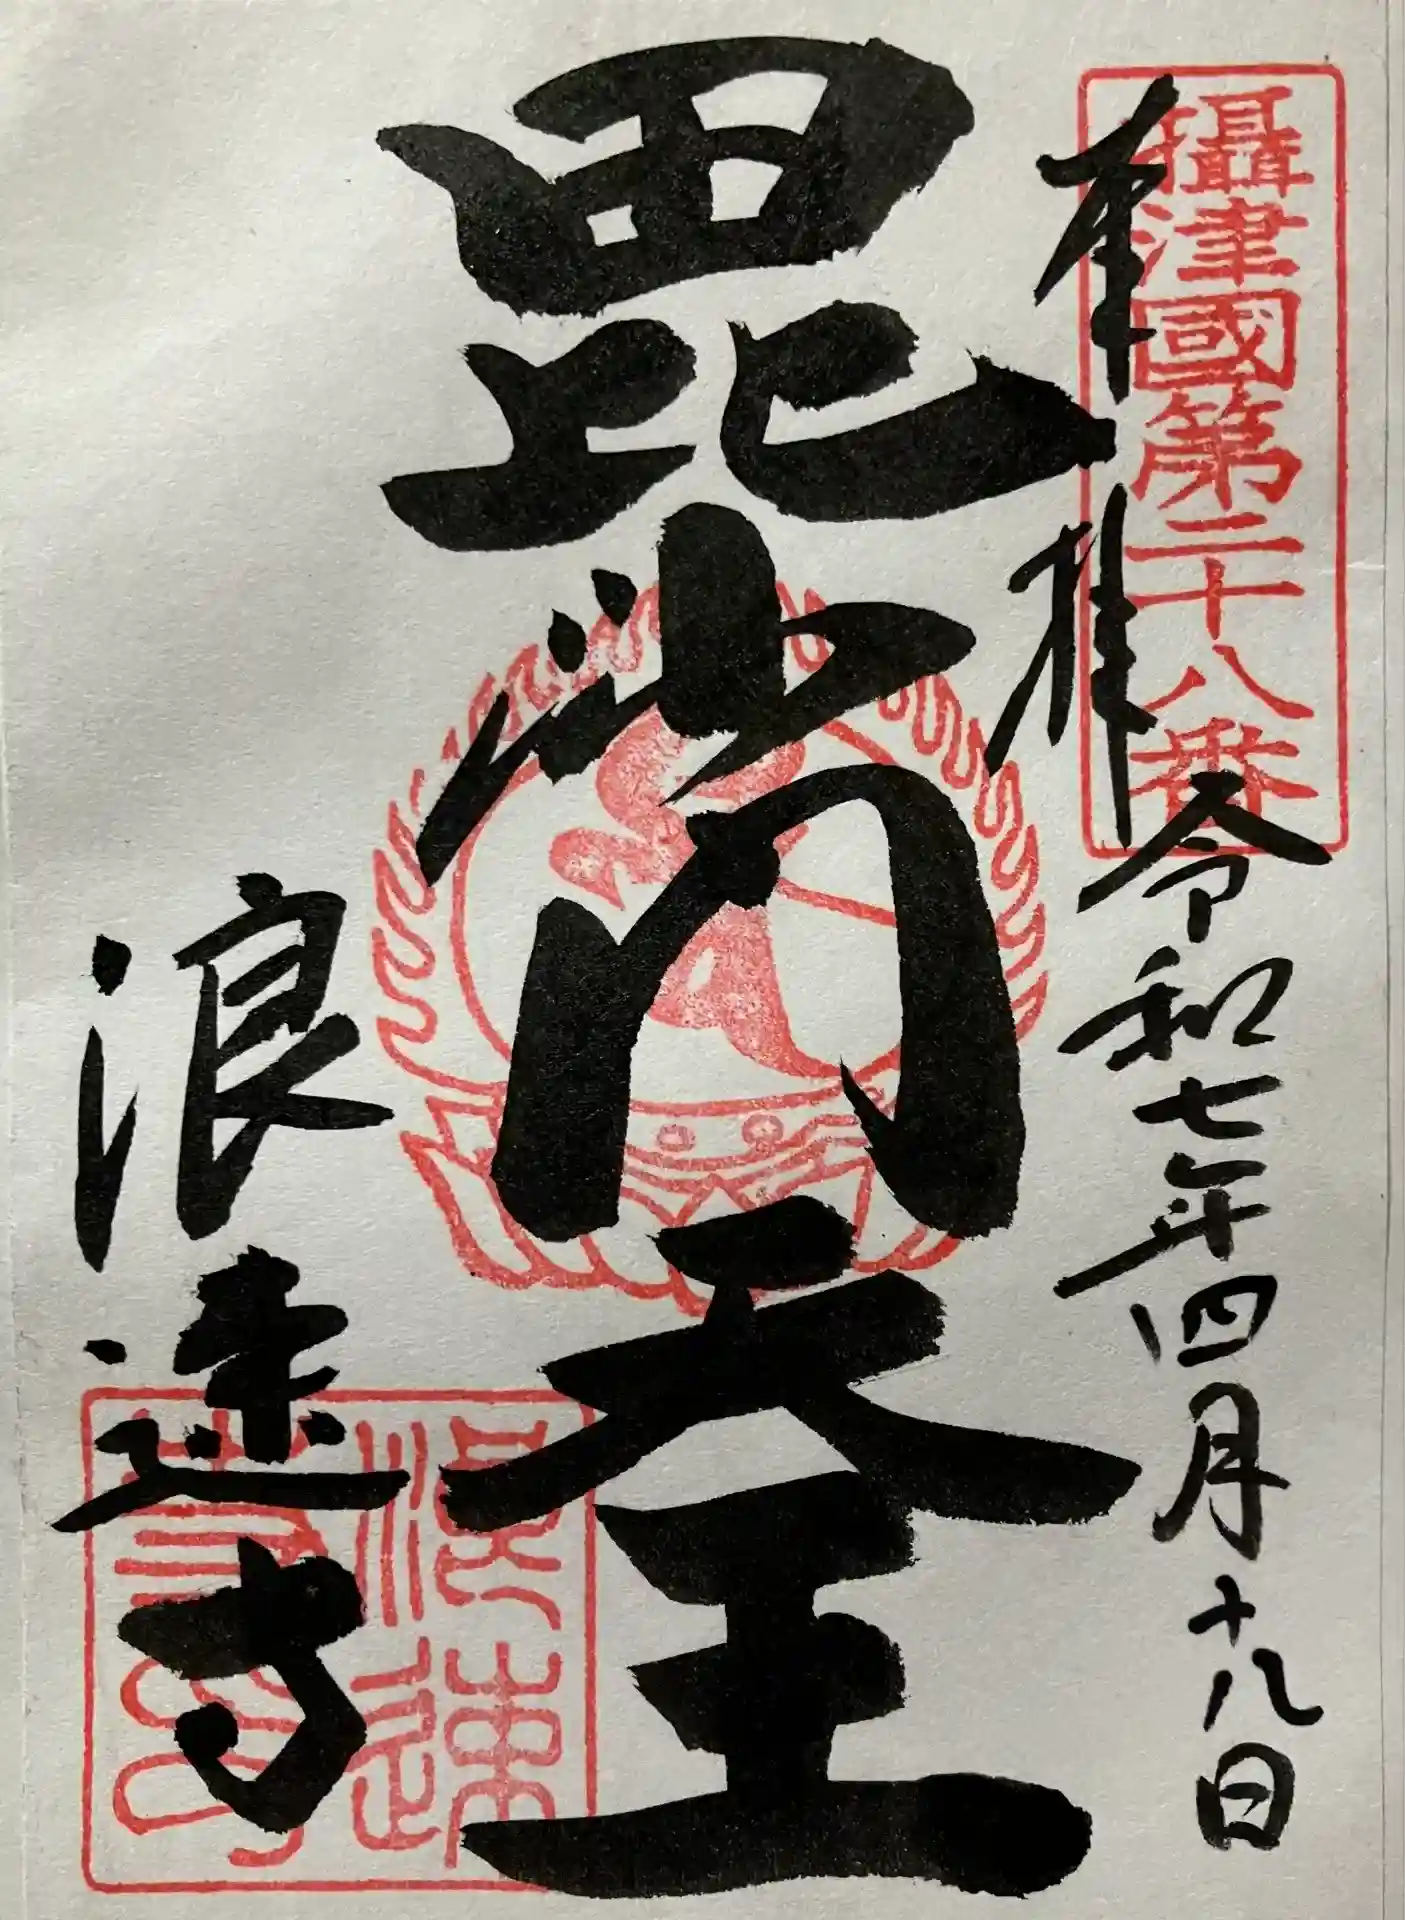 攝津國第二十八番
奉拝
令和七年四月十八日
毘沙門天王
浪速寺
浪速寺印